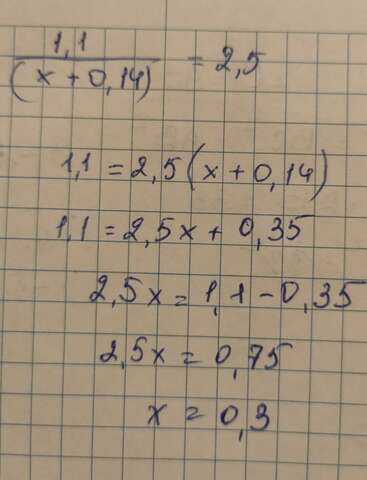 1,1 / (x + 0,14) = 2,5
1,1 = 2,5 (x + 0,14)
1,1 = 2,5x + 0,35
2,5x = 1,1 - 0,35
2,5x = 0,75
x = 0,3